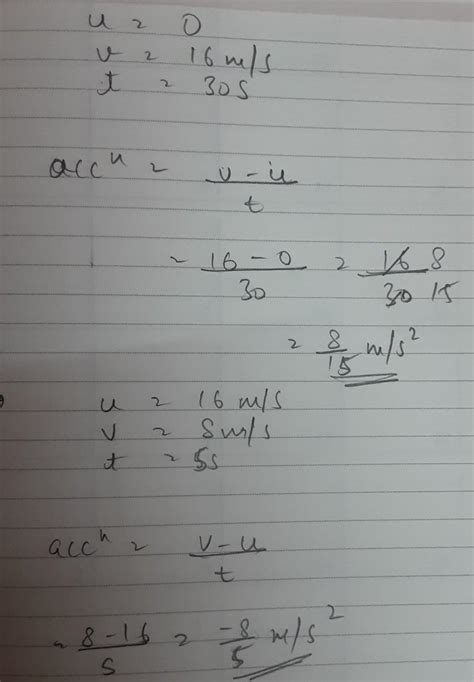 u = 0
v = 16 m/s
t = 30s
accⁿ = v-u/t
= 16-0/30 = 16/30 8/15
= 8/15 m/s²
u = 16 m/s
v = 8m/s
t = 5s
accⁿ = v-u/t
= 8-16/5 = -8/5 m/s²